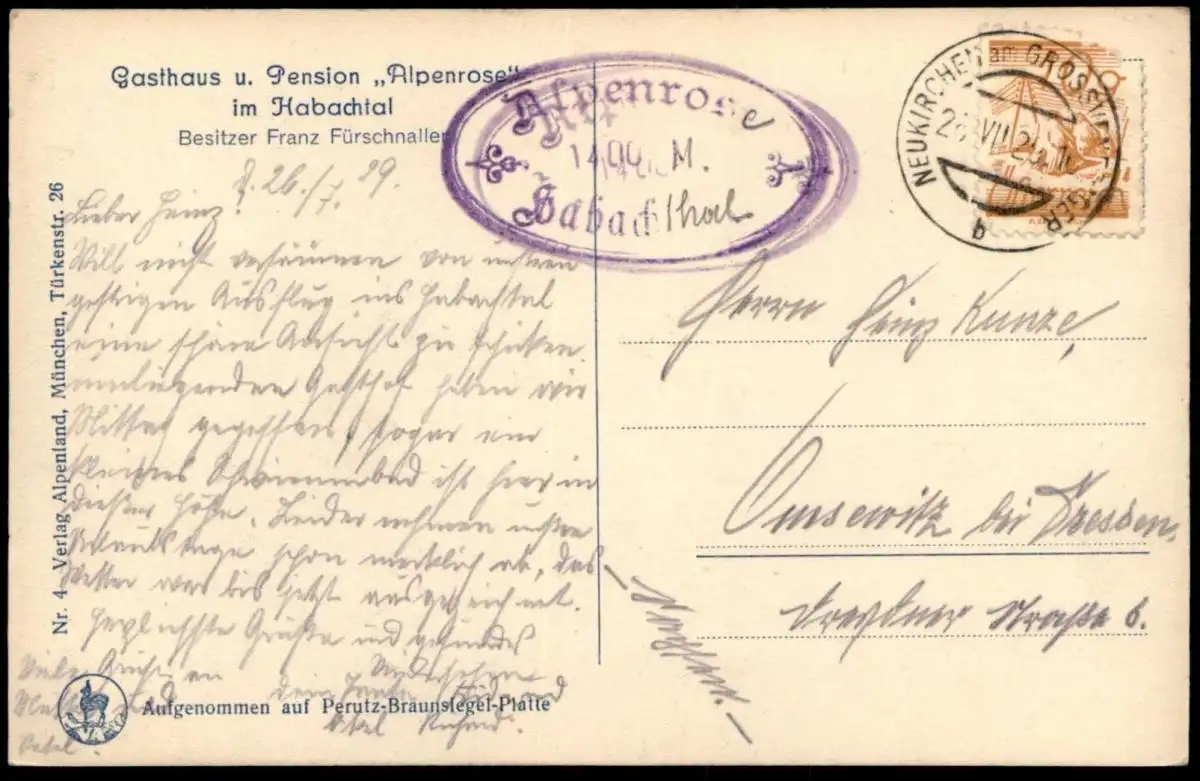 Gasthaus u. Pension „Alpenrose“
im Habachtal
Besitzer Franz Fürschnaller
Alpenrose
1400 M.
Habachthal
NEUKIRCHEN am GROSSVENEDIGER
b
26.7.29.
Lieber Heinz!
Will nicht versäumen von unserem
gestrigen Ausflug ins Habachtal
eine schöne Ansicht zu schicken.
Gasthof haben wir
Mittag gegessen, sogar ein
kleines Schwimmbad ist hier in
dieser Höhe. Leider nehmen unsere
Urlaubstage schon merklich ab, das
Wetter war bis jetzt ausgezeichnet.
Herzlichste Grüße und gesundes
Wiedersehen
dein und
Onkel Richard.
Viele Grüße an
Mutter und
Herrn Heinz Kunze,
Omsewitz bei Dresden.
Dresdner Straße 6.
– Sachsen. –
Nr. 4 – Verlag Alpenland, München, Türkenstr. 26
Aufgenommen auf Perutz-Braunsiegel-Platte